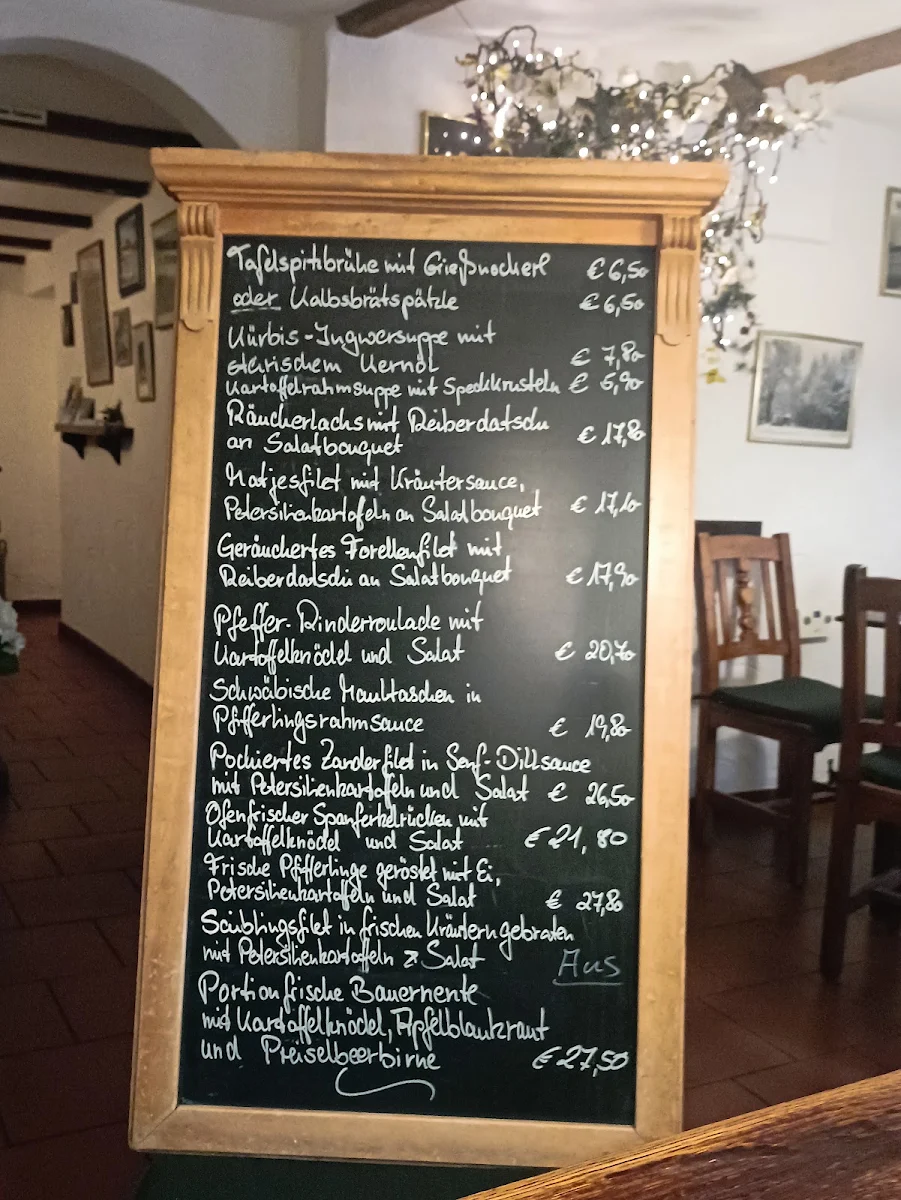 Tafelspitzbrühe mit Grießnockerl € 6,50
oder Kalbsbrätspätzle € 6,50
Kürbis-Ingwersuppe mit
steirischem Kernöl € 7,80
Kartoffelrahmsuppe mit Speckkrusteln € 6,90
Räucherlachs mit Reiberdatschi
an Salatbouquet € 17,80
Matjesfilet mit Kräutersauce,
Petersilienkartofeln an Salatbouquet € 17,10
Geräuchertes Forellenfilet mit
Reiberdatschi an Salatbouquet € 17,90
Pfeffer-Rinderroulade mit
Kartoffelknödel und Salat € 20,70
Schwäbische Maultaschen in
Pfifferlingsrahmsauce € 19,80
Pochiertes Zanderfilet in Senf-Dillsauce
mit Petersilienkartofeln und Salat € 26,50
Ofenfrischer Spanferkelrücken mit
Kartoffelknödel und Salat € 21,80
Frische Pfifferlinge geröstet mit Ei,
Petersilienkartoffeln und Salat € 27,80
Saiblingsfilet in frischen Kräutern gebraten
mit Petersilienkartoffeln & Salat Aus
Portion frische Bauernente
mit Kartoffelknödel, Apfelblaukraut
und Preiselbeerbirne € 27,50